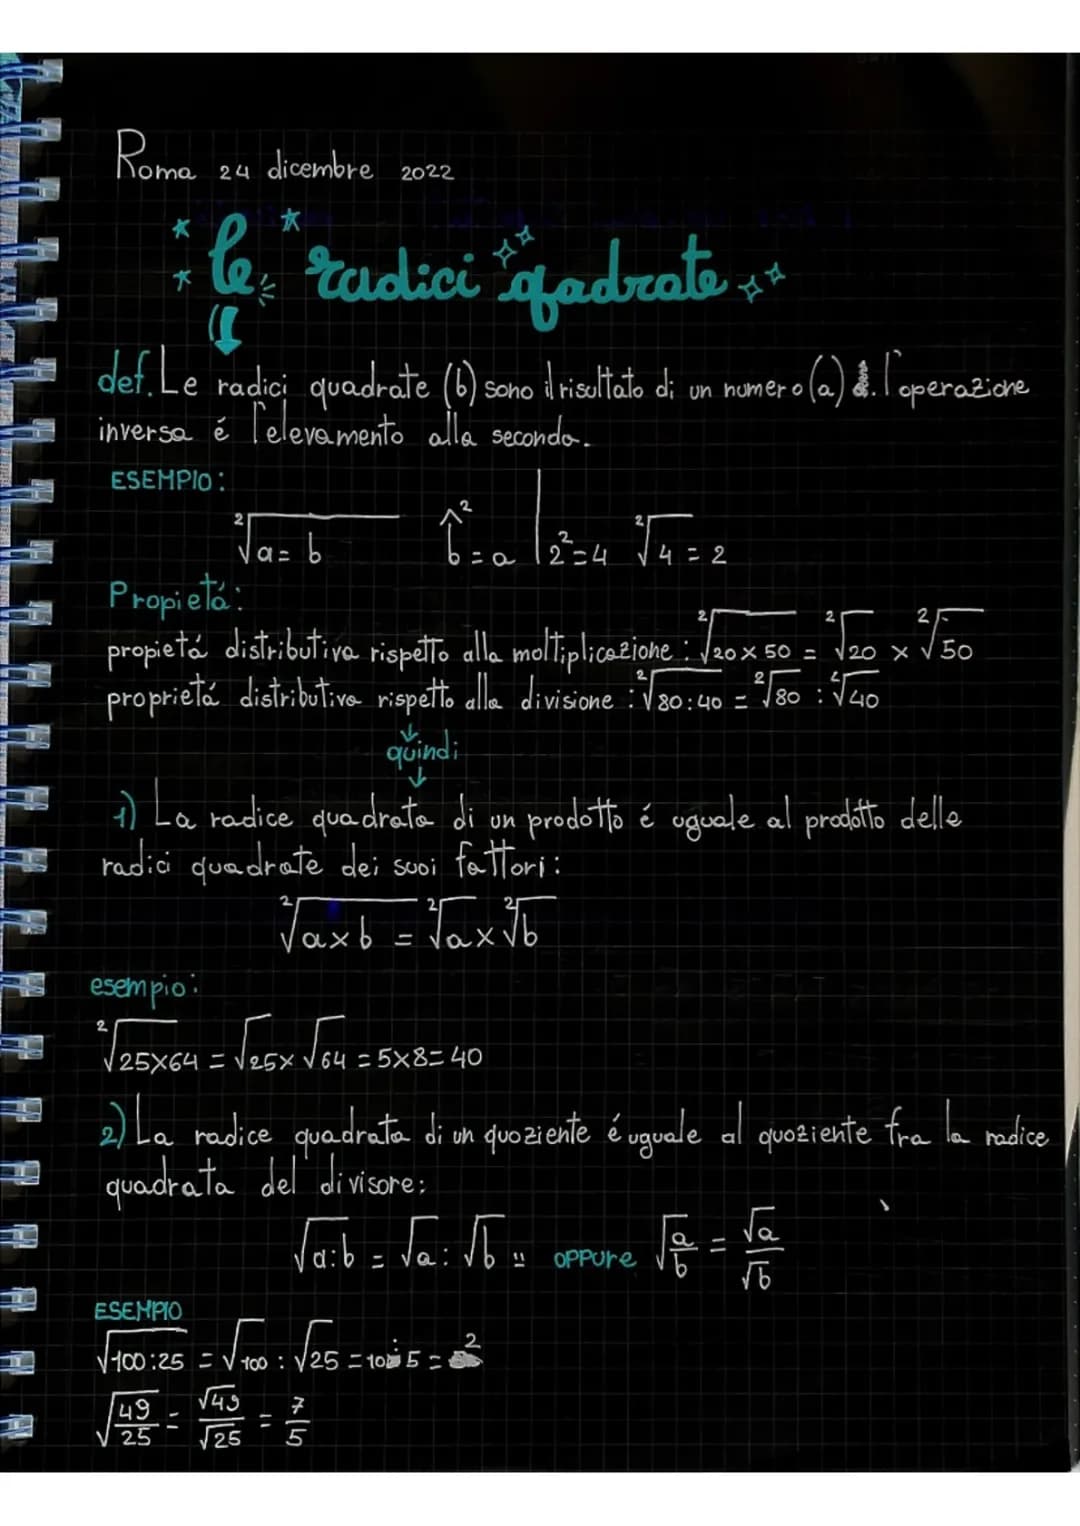 Roma 24 dicembre 2022
le radici qadrate
def. Le radici quadrate (b) sono il risultato di un numero (a) . l'operazione
inversa é l'elevamento alla seconda.
ESEMPIO:
²√a = b b² = a | 2² = 4 ²√4 = 2
Propietá:
propietá distributiva rispetto alla moltiplicazione : ²√20 × 50 = ²√20 × ²√50
proprietá distributiva rispetto alla divisione : ²√80:40 = ²√80 : ²√40
quindi
1) La radice quadrata di un prodotto é uguale al prodotto delle
radici quadrate dei suoi fattori:
²√a×b = ²√a × ²√b
esempio:
²√25×64 = √25 × √64 = 5×8 = 40
2) La radice quadrata di un quoziente é uguale al quoziente fra la radice
quadrata del divisore:
√a:b = √a : √b oppure √(a/b) = √a/√b
ESEMPIO
√100:25 = √100 : √25 = 10:5 = 2
√(49/25) = √49/√25 = 7/5